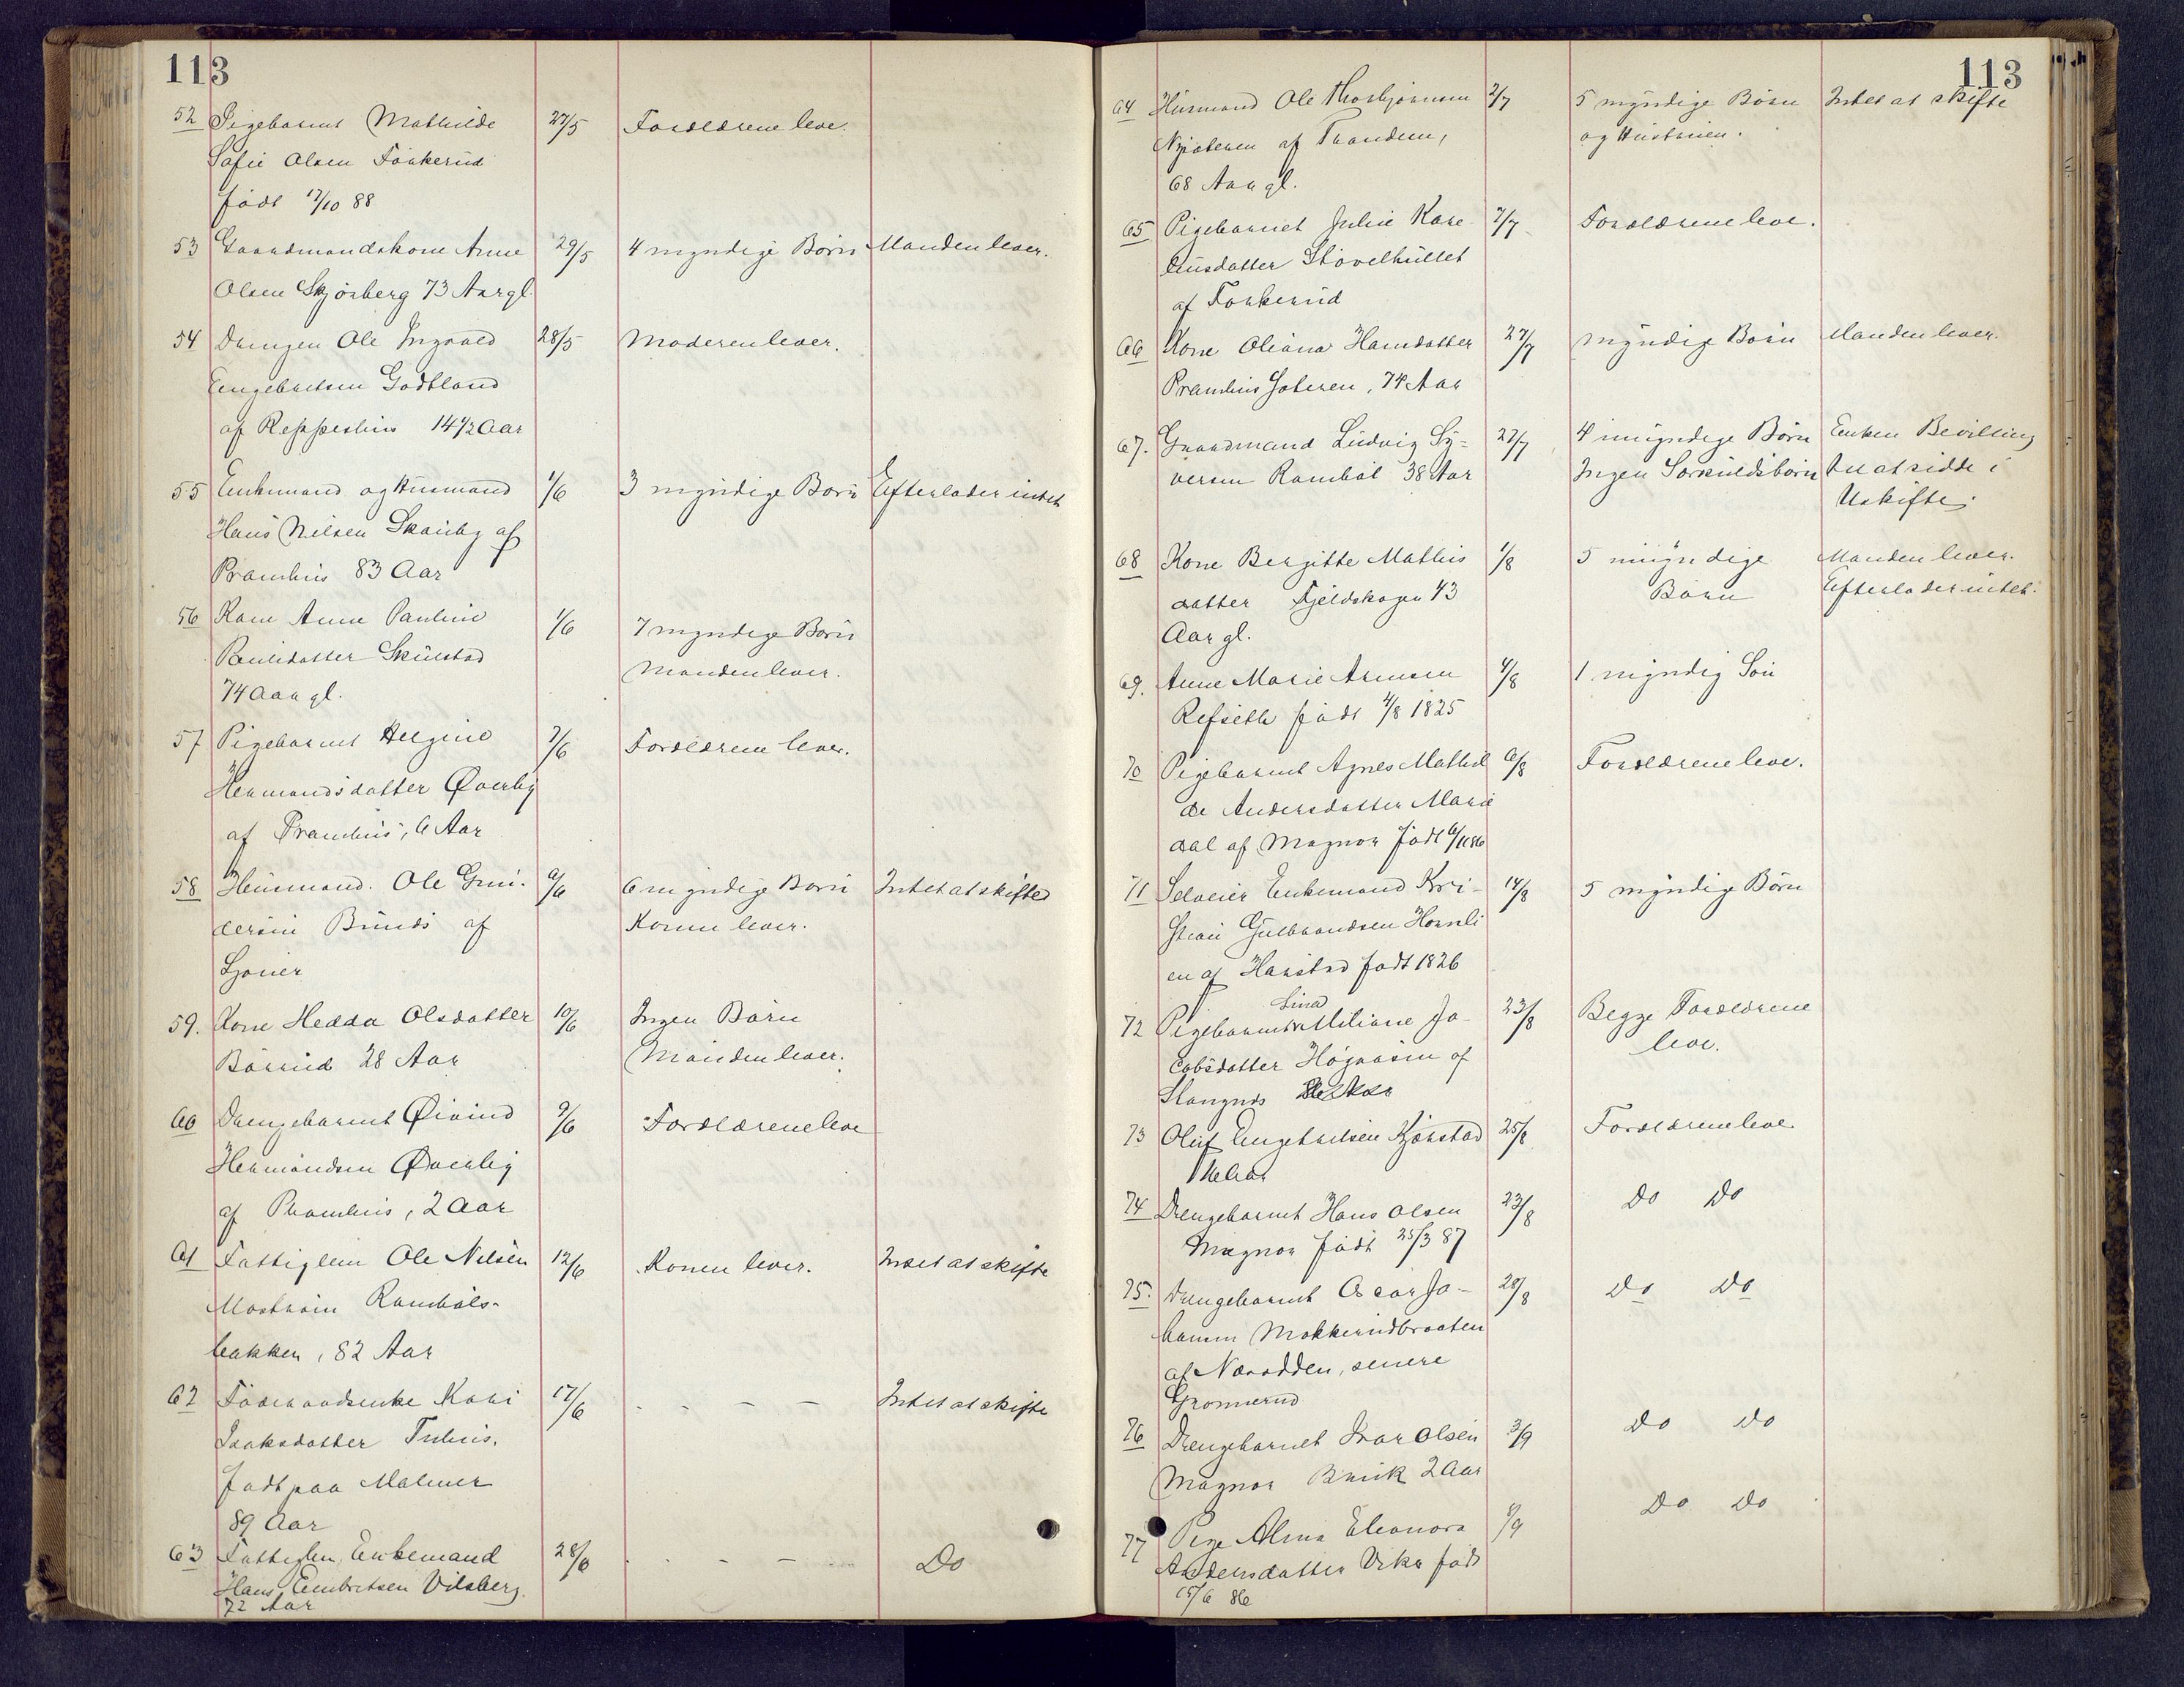 113
52 Pigebarnet Mathilde 27/5 Forældrene leve.
Sofie Olsen Torkerud
født 17/10 88
53 Gaardmandskone Anne 29/5 4 myndige Børn Manden lever.
Olsen Skjørberg 73 Aar gl.
54 Drengen Ole Ingvald 28/5 Moderen lever.
Engebretsen Godtland
af Reppeshus 14 1/2 Aar
55 Enkemand og Husmand 1/6 3 myndige Børn Efterlader intet
Hans Nilsen Skauby af
Pramhus 83 Aar
56 Kone Anne Pauline 1/6 7 myndige Børn
Poulsdatter Skulstad Manden lever.
74 Aar gl.
57 Pigebarnet Helgine 7/6 Forældrene lever.
Hermansdatter Øverby
af Pramhus, 6 Aar
58 Husmand Ole Gun- 9/6 6 myndige Børn Intet at skifte
dersen Brunds af Konen lever.
59. Kone Hedda Olsdatter 10/6 Ingen Børn
Børrud 28 Aar Manden lever.
60 Drengebarnet Øivind 9/6 Forældrene leve
Hermandsen Øverby
af Pramhus, 2 Aar
61 Fattiglem Ole Nilsen 12/6 Konen lever. Intet at skifte
Mostrain Rambøls-
bakken, 82 Aar
62 Føderaadsenke Kari 17/6 - - - - Intet at skifte
Isaksdatter Tuhus,
født paa Malmer
89 Aar
63 Fattiglem, Enkemand 28/6 - - - - Do
Hans Embretsen Vilsberg
72 Aar
113
64 Husmand Ole Thorbjørnsen 2/7 5 myndige Børn Intet at skifte
af Trandem, og Hustruen.
68 Aar gl.
65 Pigebarnet Julie Kare- 7/7 Forældrene leve.
liusdatter Støvelhullet
af Torkerud
66 Kone Oliana Hansdatter 27/7 myndige Børn Manden lever.
Pramhus Sæteren, 74 Aar
67. Gaardmand Ludvig Sy- 27/7 4 umyndige Børn Enken Bevilling
versen Rambøl 38 Aar Ingen Særkuldsbørn til at sidde i
Uskifte
68 Kone Bergitte Mathis 1/8 5 umyndige Manden lever.
datter Fjeldskogen 43 Børn Efterlader intet.
Aar gl.
69. Anne Marie Arnesen 4/8 1 myndig Søn
Refseth født 4/8 1825
70 Pigebarnet Agnes Mathil 6/8 Forældrene leve.
de Andersdatter Marie
dal af Magnor født 6/11 86
71 Selveier Enkemand Kri- 14/8 5 myndige Børn
stian Gulbrandsen Hornli
en af Harstad født 1826
Lina
72 Pigebarnet Miliane Ja- 23/8 Begge Forældrene
cobsdatter Høgaasen af leve.
Slangnes
73 Oluf Engebretsen Kjørstad 25/8 Forældrene leve
74 Drengebarnet Hans Olsen 23/8 Do Do
Magnor født 25/3 87
75. Drengebarnet Oscar Jo- 28/8 Do Do
hansen Mokkerudbraaten
af Næsodden, senere
Gronnerud
76 Drengebarnet Ivar Olsen 3/9 Do Do
Magnor Bruk 2 Aar
77 Pige Alma Eleonora 8/9 Do Do
Andersdatter Vika født
15/6 86